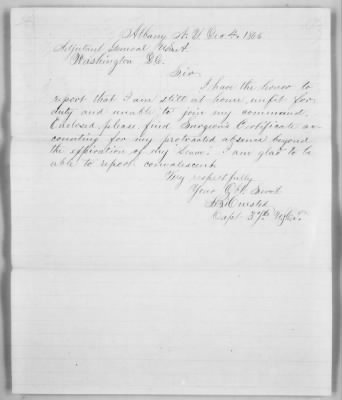 Albany N.Y. Dec 4, 1866
Adjutant General
Washington D.C.
Sir
I have the honor to
report that I am still at home, unfit for
duty and unable to join my command.
Enclosed please find Surgeon's Certificate ac-
counting for my protracted absence beyond
the expiration of my "Leave." I am glad to be
able to report convalescent
Very respectfully
Your Obt Servt
Capt 37th